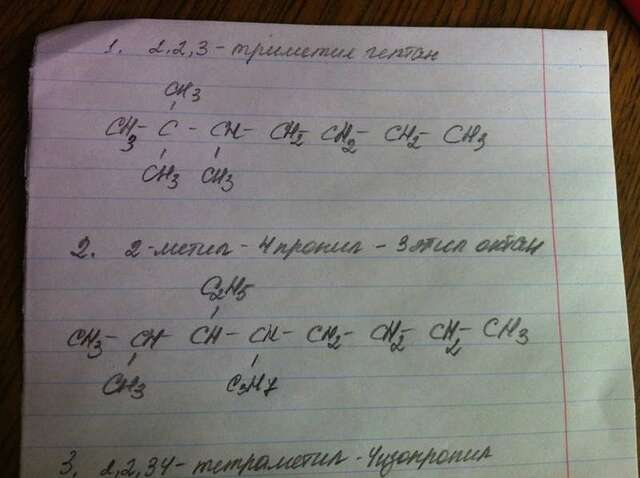 1. 2,2,3 - триметил гептан
CH3
CH3- C - CH - CH2 CH2 - CH2 - CH3
CH3 CH3
2. 2-метил - 4пропил - 3этил октан
C2H5
CH3- CH - CH - CH - CH2 - CH2 - CH2 - CH3
CH3 C3H7
3. 2,2,34 - тетраметил - 4изопропил